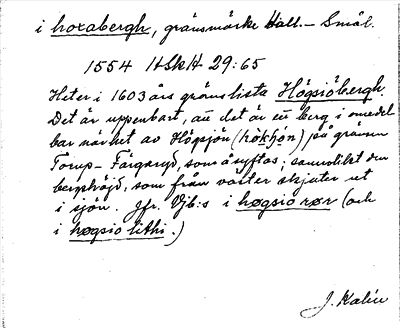 i hoxabergh, gränsmärke Hall.- Smål.
1554 HSkH 29:65
Heter i 1603 års gränslista Högsiöbergh.
Det är uppenbart, att det är ett berg i omedel-
bar närhet av Högsjön (hökhjön) på gränsen
Torup- Färgaryd, som åsyftas; sannolikt den
bergshöjd, som från väster skjuter ut
i sjön. Jfr. Vjb:s i høgsio rør (och
i høgsio lithi.)
J. Kalén